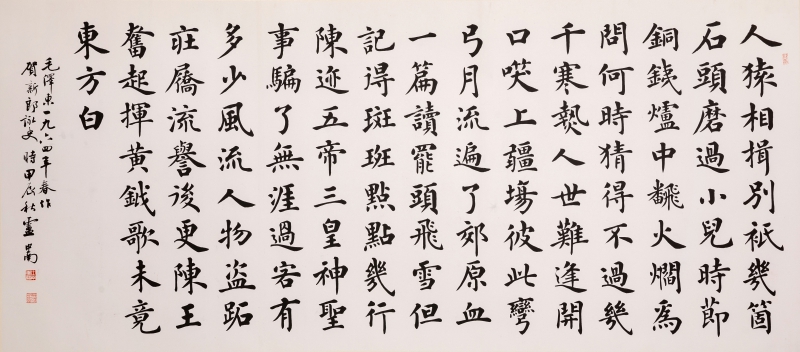 人猿相揖別祇幾箇
石頭磨過小兒時節
銅鐵爐中飜火爓為
問何時猜得不過幾
千寒熱人世難逢開
口咲上疆場彼此彎
弓月流遍了郊原血
一篇讀罷頭飛雪但
記得斑斑點點幾行
陳迹五帝三皇神聖
事騙了無涯過客有
多少風流人物盜跖
莊屩流譽後更陳王
奮起揮黃鉞歌未竟
東方白
毛澤東一九六四年春作
賀新郎詠史 時甲辰秋